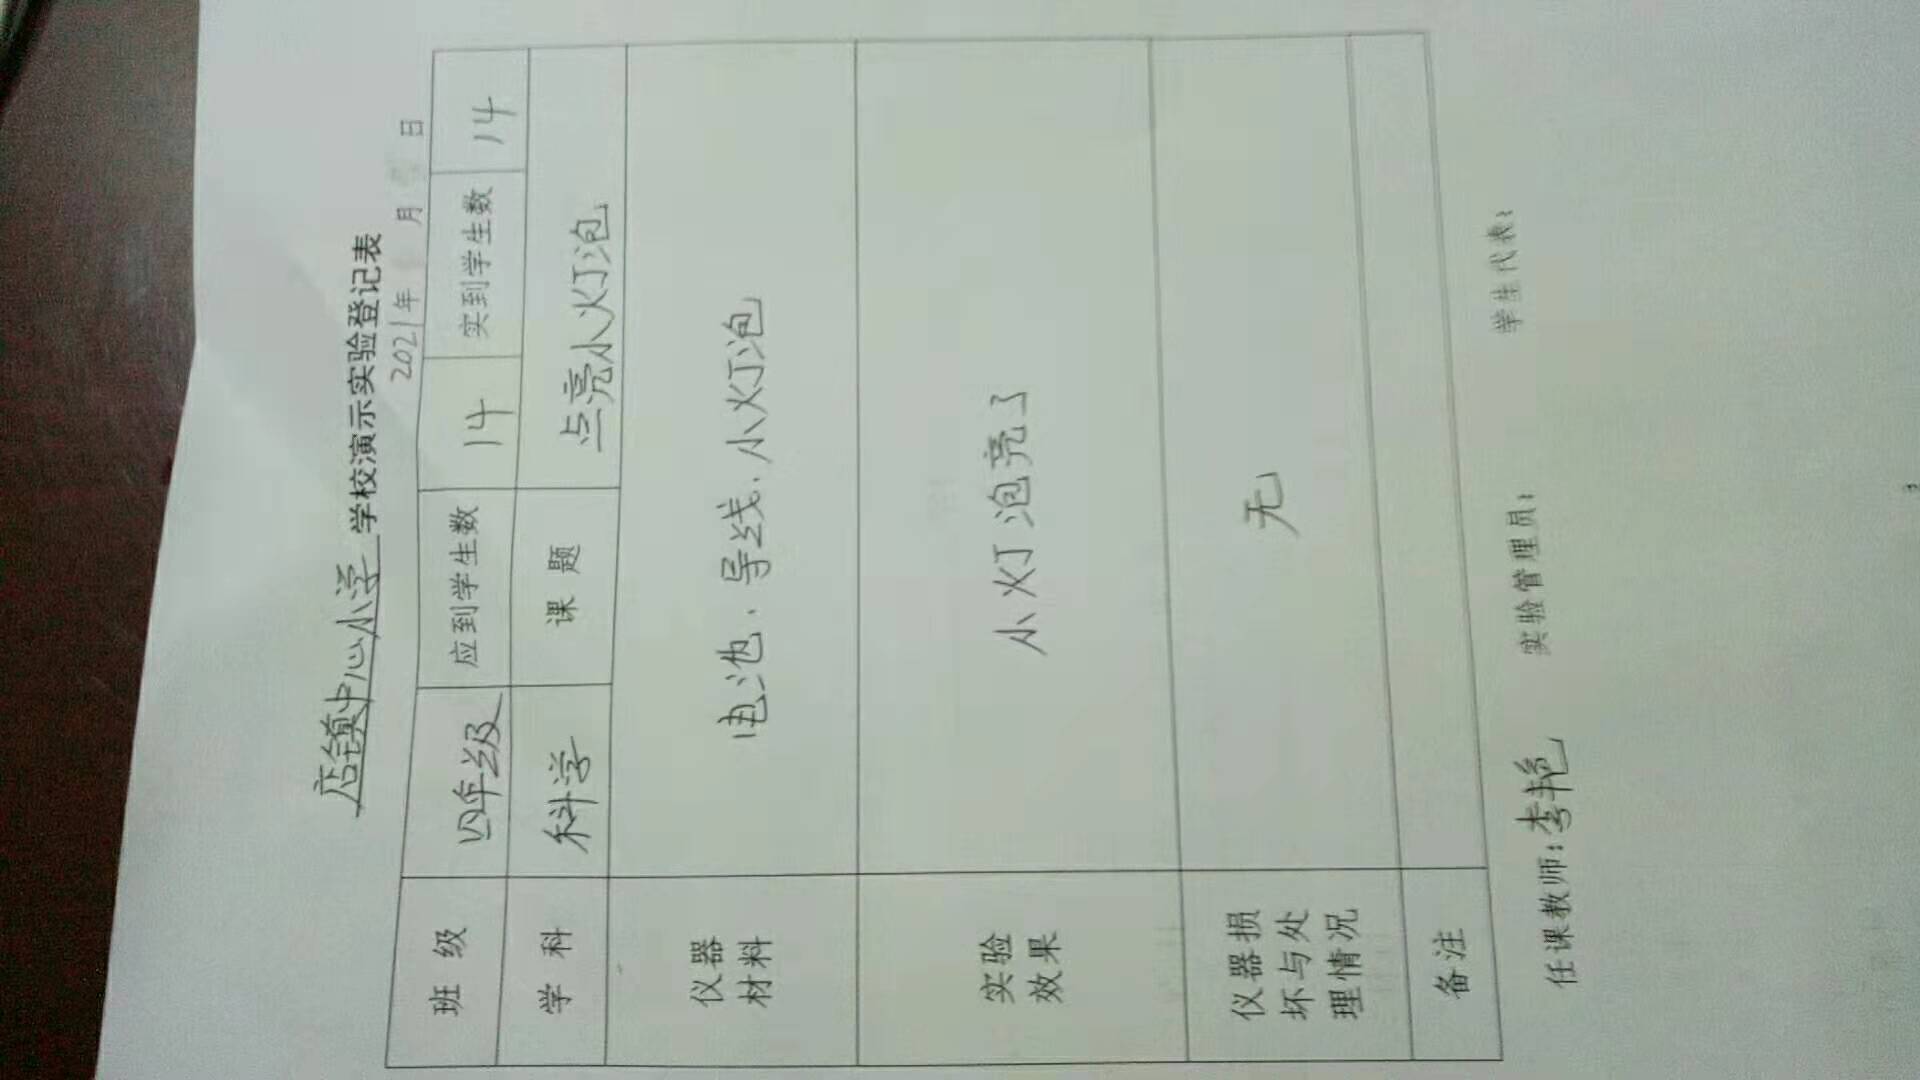 店镇中心小学 学校演示实验登记表
2021年 月 日
班 级 四年级 应到学生数 14 实到学生数 14
学 科 科学 课 题 点亮小灯泡
仪器
材料
电池、导线、小灯泡
实验
效果
小灯泡亮了
仪器损
坏与处
理情况
无
备注
任课教师：李艳 实验管理员： 学生代表：